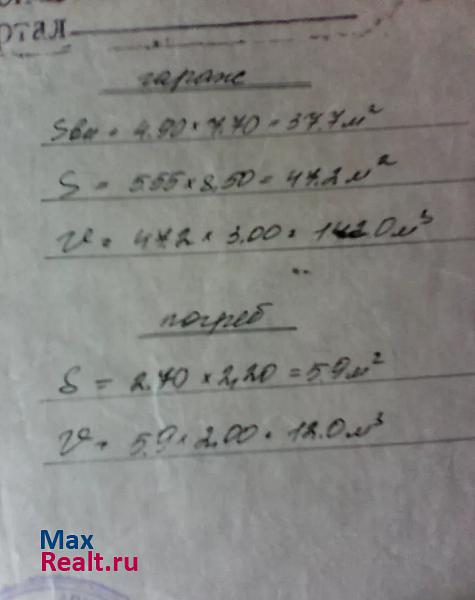 ртал
гараж
Sвн = 4.90 × 7.70 = 37.7 м²
S = 5.55 × 8,50 = 47.2 м²
V = 47.2 × 3.00 = 142.0 м³
погреб
S = 2.70 × 2,20 = 5.9 м²
V = 5.9 × 2,00 = 12.0 м³
Max
Realt.ru